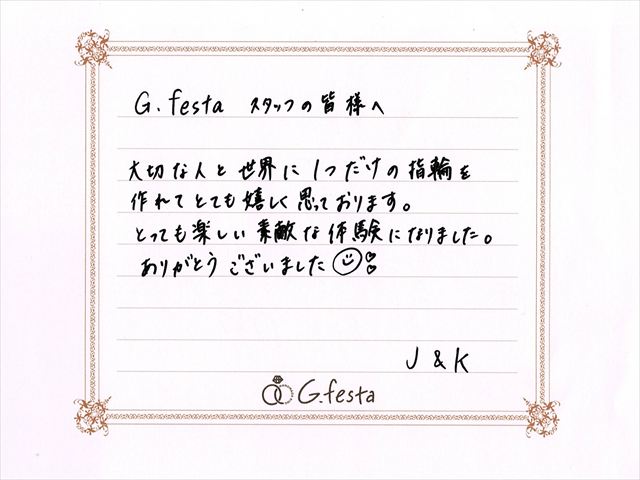 G.festa スタッフの皆様へ
大切な人と世界に1つだけの指輪を
作れてとても嬉しく思っております。
とっても楽しい素敵な体験になりました。
ありがとうございました
J & K
G.festa